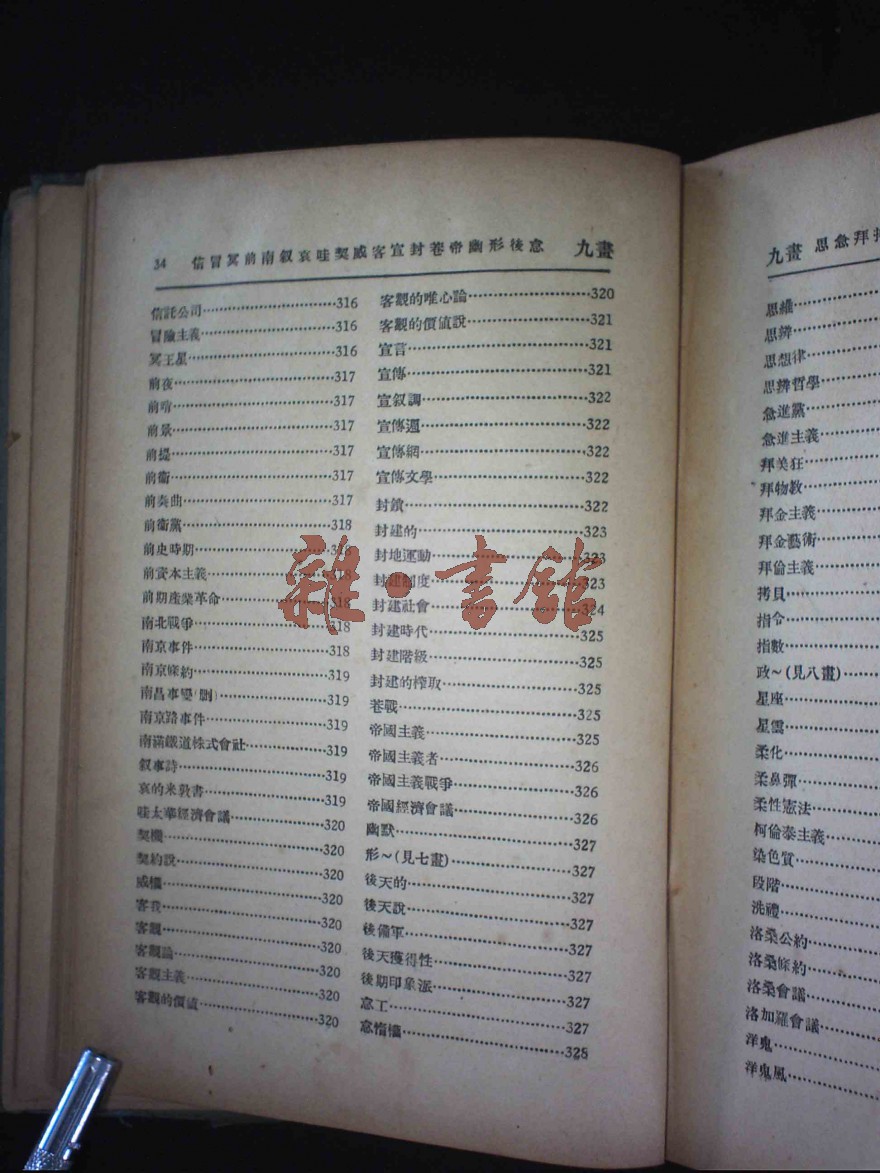 34 信冒冥前南叙哀哇契威客宣封巷帝幽形後怠 九畫
信託公司……316
冒險主義……316
冥王星……316
前夜……317
前哨……317
前景……317
前提……317
前衞……317
前奏曲……317
前衞黨……318
前史時期……318
前資本主義……318
前期產業革命……318
南北戰爭……318
南京事件……318
南京條約……319
南昌事變(劉)……319
南京路事件……319
南滿鐵道株式會社……319
叙事詩……319
哀的米敦書……319
哇太華經濟會議……320
契機……320
契約說……320
威權……320
客我……320
客觀……320
客觀論……320
客觀主義……320
客觀的價值……320
客觀的唯心論……320
客觀的價值說……321
宣言……321
宣傳……321
宣叙調……322
宣傳週……322
宣傳網……322
宣傳文學……322
封鎖……322
封建的……323
封地運動……323
封建制度……323
封建社會……324
封建時代……325
封建階級……325
封建的榨取……325
巷戰……325
帝國主義……325
帝國主義者……326
帝國主義戰爭……326
帝國經濟會議……326
幽默……327
形~(見七畫)……327
後天的……327
後天說……327
後備軍……327
後天獲得性……327
後期印象派……327
怠工……327
怠惰權……328
雜·書館
九畫 思急拜
思維……
思辨……
思想律……
思辨哲學……
急進黨……
急進主義……
拜美狂……
拜物教……
拜金主義……
拜金藝術……
拜倫主義……
拷貝……
指令……
指數……
政~(見八畫)……
星座……
星雲……
柔化……
柔鼻彈……
柔性憲法……
柯倫泰主義……
染色質……
段階……
洗禮……
洛桑公約……
洛桑條約……
洛桑會議……
洛加羅會議……
洋鬼……
洋鬼風……